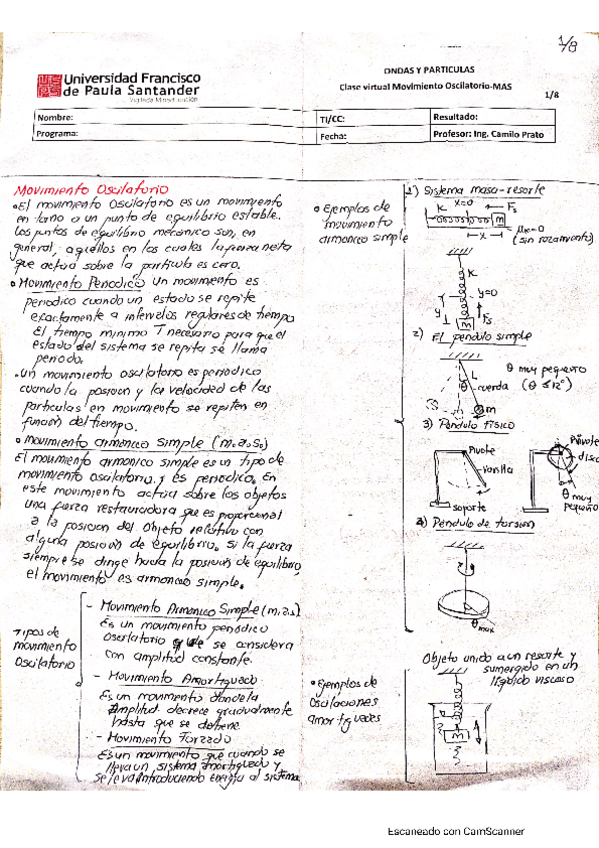 1/8
Universidad Francisco
de Paula Santander
Vigilada Mineducación
ONDAS Y PARTICULAS
Clase virtual Movimiento Oscilatorio-MAS
1/8
Nombre:
TI/CC:
Resultado:
Programa:
Fecha:
Profesor: Ing. Camilo Prato
Movimiento Oscilatorio
• El movimiento Oscilatorio es un movimiento
en torno a un punto de equilibrio estable.
Los puntos de equilibrio mecánico son, en
general, aquellos en los cuales la fuerza neta
que actua sobre la particula es cero.
• Movimiento Periodico Un movimiento es
periodico cuando un estado se repite
exactamente a intervalos regulares de tiempo
El tiempo minimo T necesario para que el
estado del sistema se repita se llama
periodo.
• Un movimiento oscilatorio es periodico
cuando la posicion y la velocidad de las
particulas en movimiento se repiten en
funcion del tiempo.
• Movimiento armonico simple (m.a.s.)
El movimiento armonico simple es un tipo de
movimiento oscilatorio y es periodico. En
este movimiento actua sobre los objetos
una fuerza restauradora que es proporcional
a la posicion del objeto relativo con
alguna posicion de equilibrio. si la fuerza
siempre se dirige hacia la posicion de equilibrio,
el movimiento es armonico simple.
Tipos de
movimiento
Oscilatorio
- Movimiento Armonico Simple (m.a.s)
Es un movimiento periodico
Oscilatorio que se considera
con amplitud constante.
- Movimiento Amortiguado
Es un movimiento donde la
Amplitud decrece gradualmente
hasta que se detiene
- Movimiento Forzado
Es un movimiento que cuando se
lleva un sistema amortiguado y
se le va introduciendo energia al sistema
• Ejemplos de
movimiento
armonico simple
1) Sistema masa-resorte
K x=0 Fs
m
x
μk=0
(sin rozamiento)
K
y y=0
m Fs
2) El pendulo simple
θ muy pequeño
(θ ≤ 12°)
L
cuerda
m
3) Pendulo fisico
Pivote
varilla
soporte
Pivote
disco
θ muy
pequeño
4) Pendulo de torsion
θ max
• Ejemplos de
Oscilaciones
amortiguadas
Objeto unido a un resorte y
sumergido en un
liquido viscoso
m
Escaneado con CamScanner